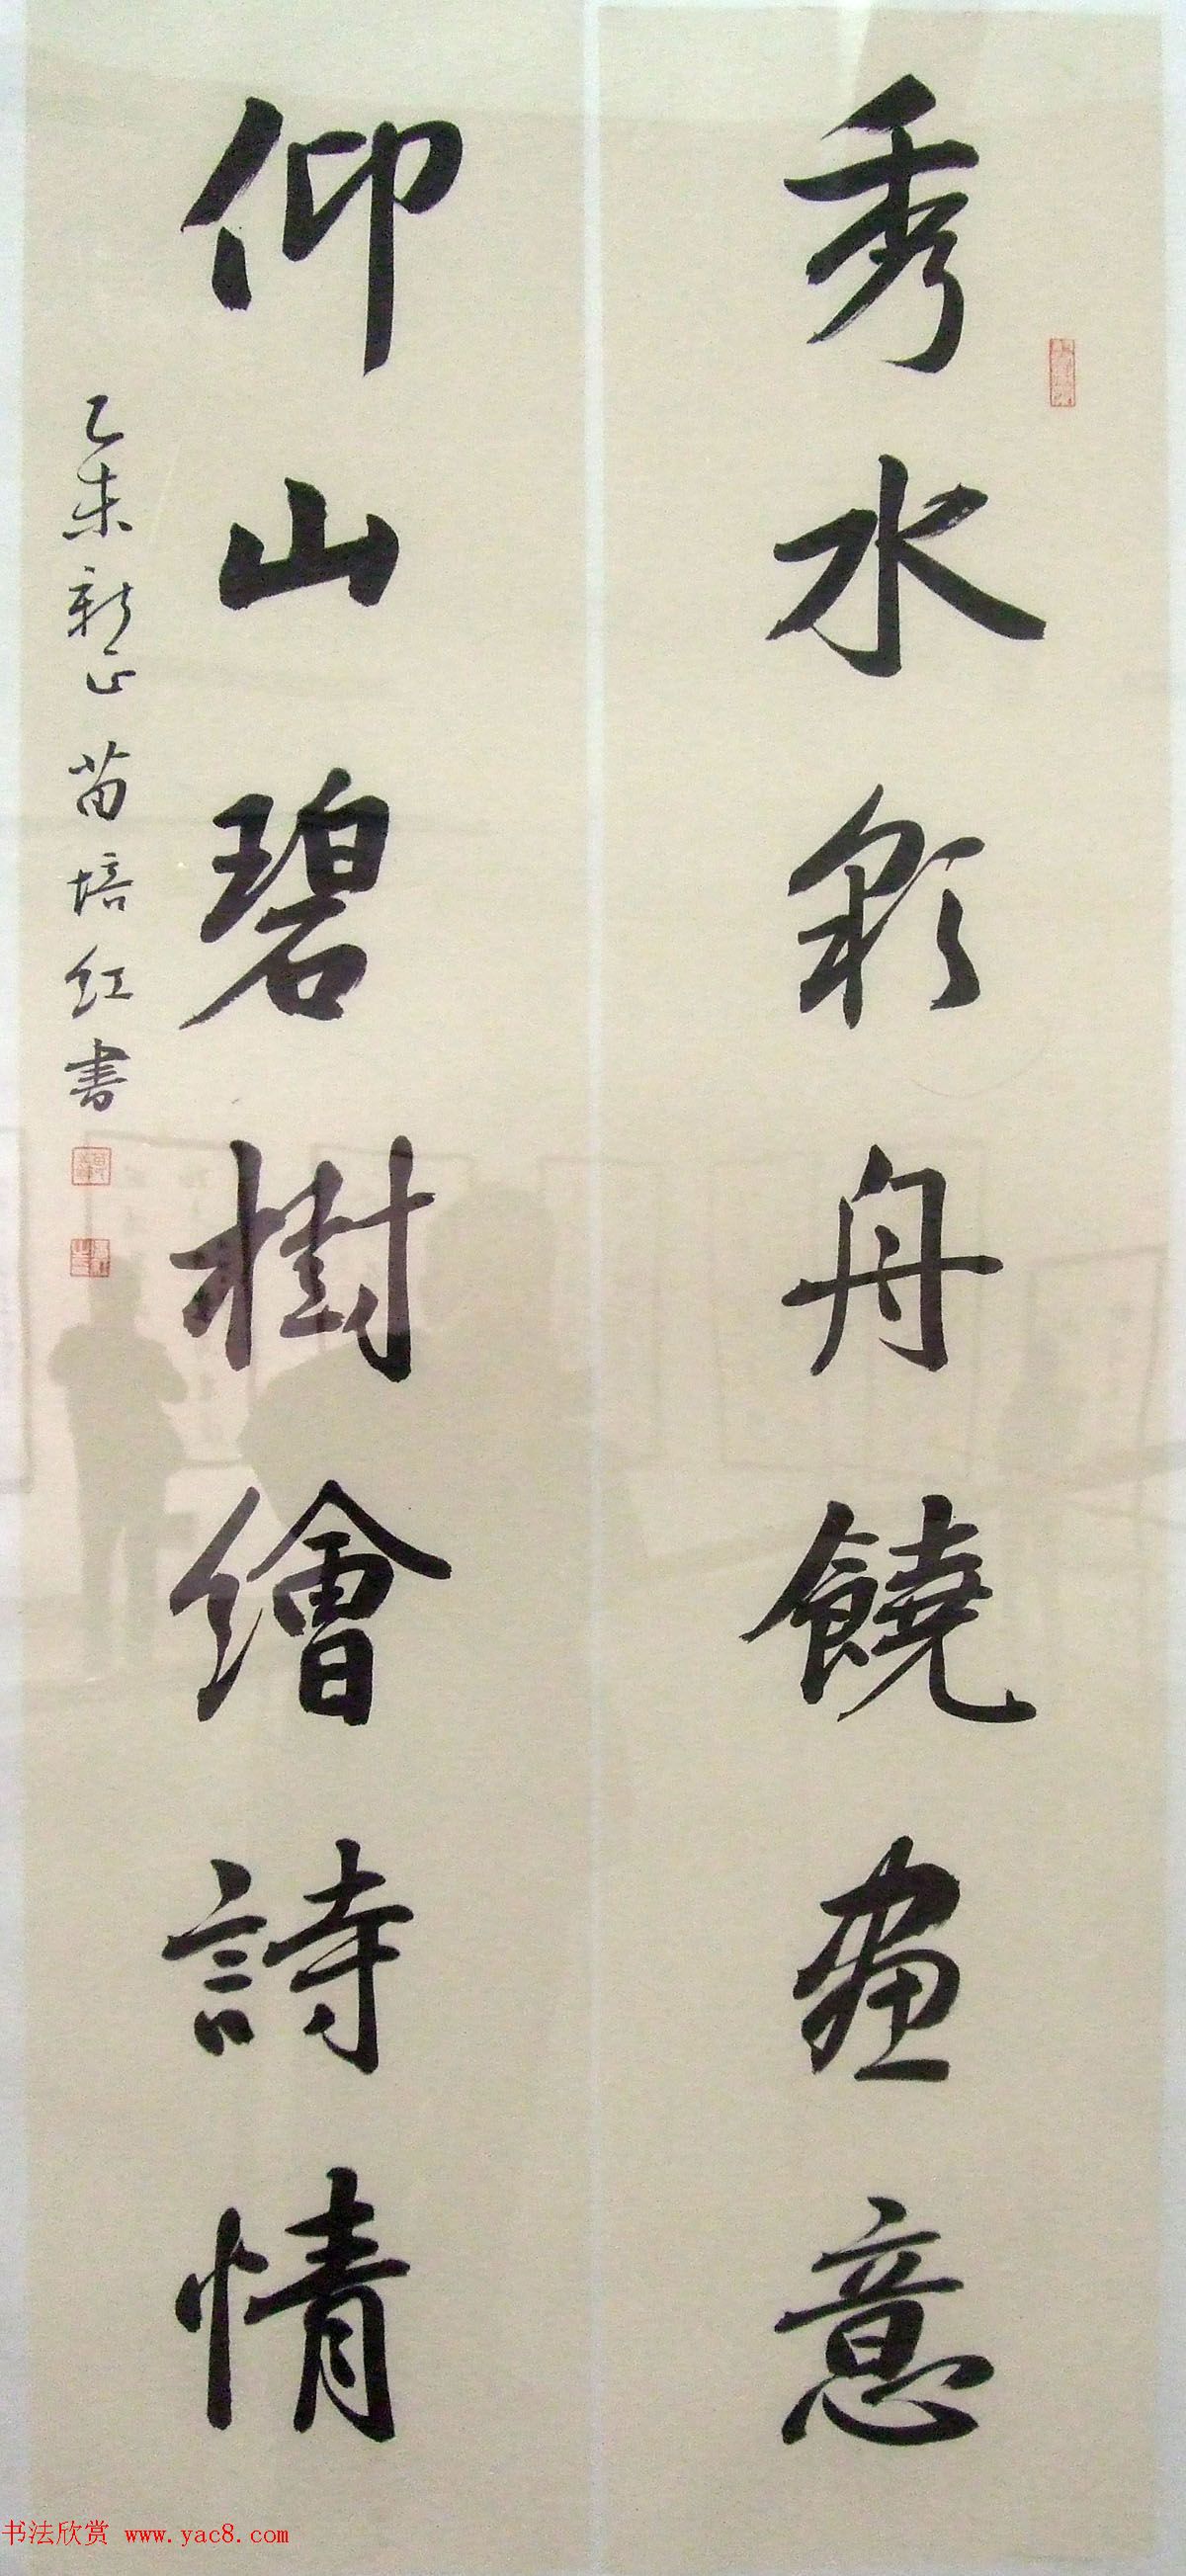 秀水彩舟饒畫意
仰山碧樹繪詩情
乙未新正苗培红書
书法欣赏 www.yac8.com